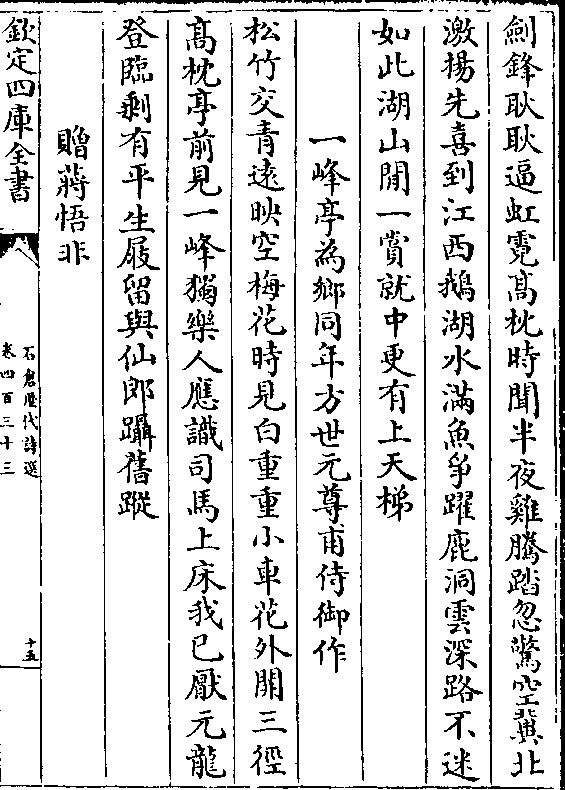 劍鋒耿耿逼虹霓髙枕時聞半夜雞騰踏忽驚空冀北
激揚先喜到江西鵝湖水滿魚爭躍鹿洞雲深路不迷
如此湖山閒一賞就中更有上天梯
一峰亭為鄉同年方世元尊甫侍御作
松竹交青逺映空梅花時見白重重小車花外開三徑
髙枕亭前見一峰獨樂人應識司馬上床我已厭元龍
登臨剩有平生屐留與仙郎躡舊蹤
贈蔣悟非
欽定四庫全書
石倉歷代詩選
卷四百三十三
十五